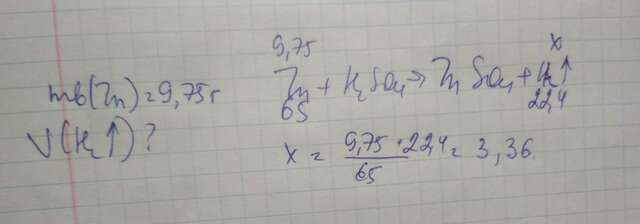 mв(Zn)=9,75г
V(H₂↑)?
9,75 x
Zn + H₂SO₄ → Zn SO₄ + H₂↑
65 22,4
x = 9,75 · 22,4 / 65 = 3,36.